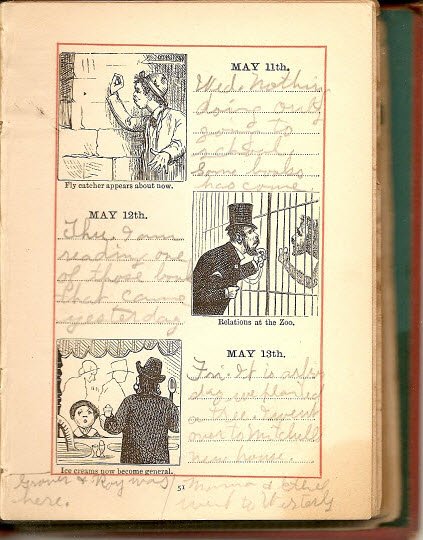 MAY 11th.
Wed. Nothing
doing only
going to
school.
Some books
has come.
Fly catcher appears about now.
MAY 12th.
Thu. I am
reading one
of those book
that came
yesterday
Relations at the Zoo.
MAY 13th.
Fri. It is arbor
day we planted
a tree. I went
over to Mitchell
new house.
Ice creams now become general.
51
Grover & Roy was
here.
Mamma & Ethel
went to Westerly